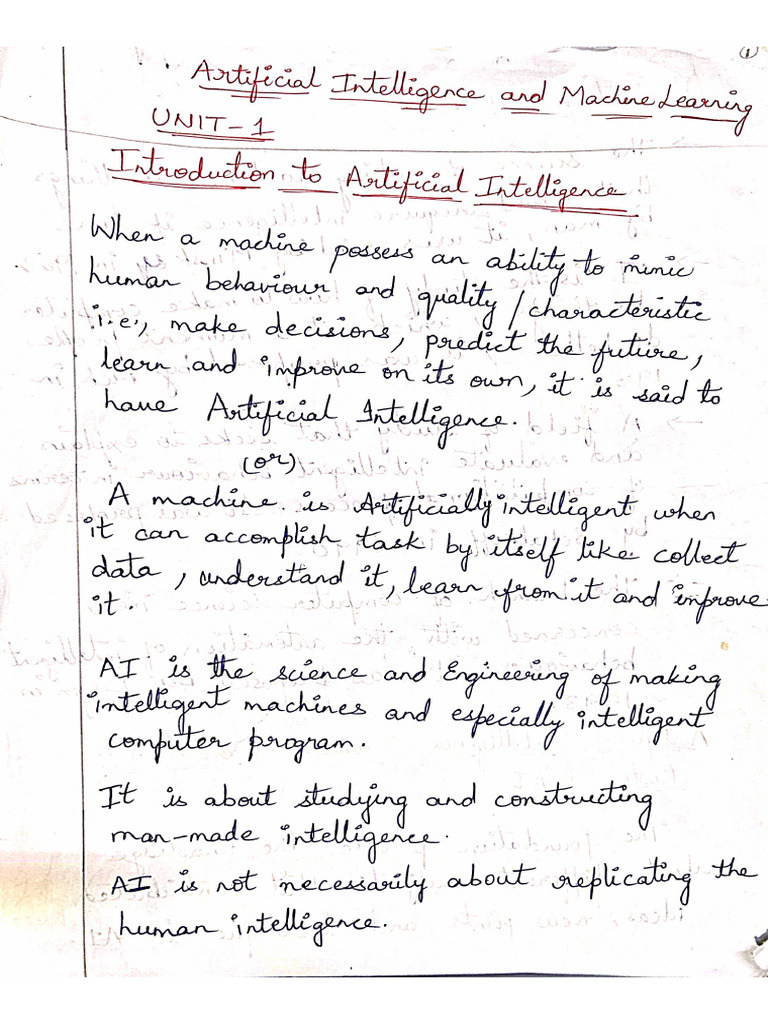 1
Artificial Intelligence and Machine Learning
UNIT-1
Introduction to Artificial Intelligence
When a machine possess an ability to mimic
human behaviour and quality/characteristic
i.e., make decisions, predict the future,
learn and improve on its own, it is said to
have Artificial Intelligence.
(or)
A machine is Artificially intelligent when
it can accomplish task by itself like collect
data, understand it, learn from it and improve
it.
AI is the science and Engineering of making
intelligent machines and especially intelligent
computer program.
It is about studying and constructing
man-made intelligence.
AI is not necessarily about replicating the
human intelligence.